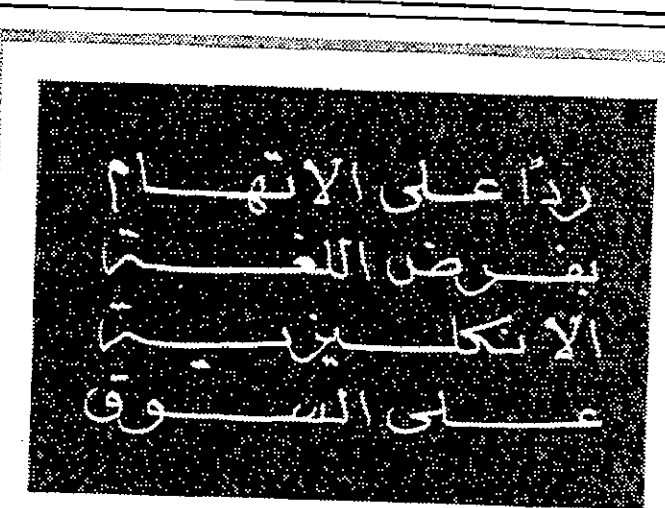 ردًا على الاتهام
بفرض اللغة
الانكليزية
على السوق